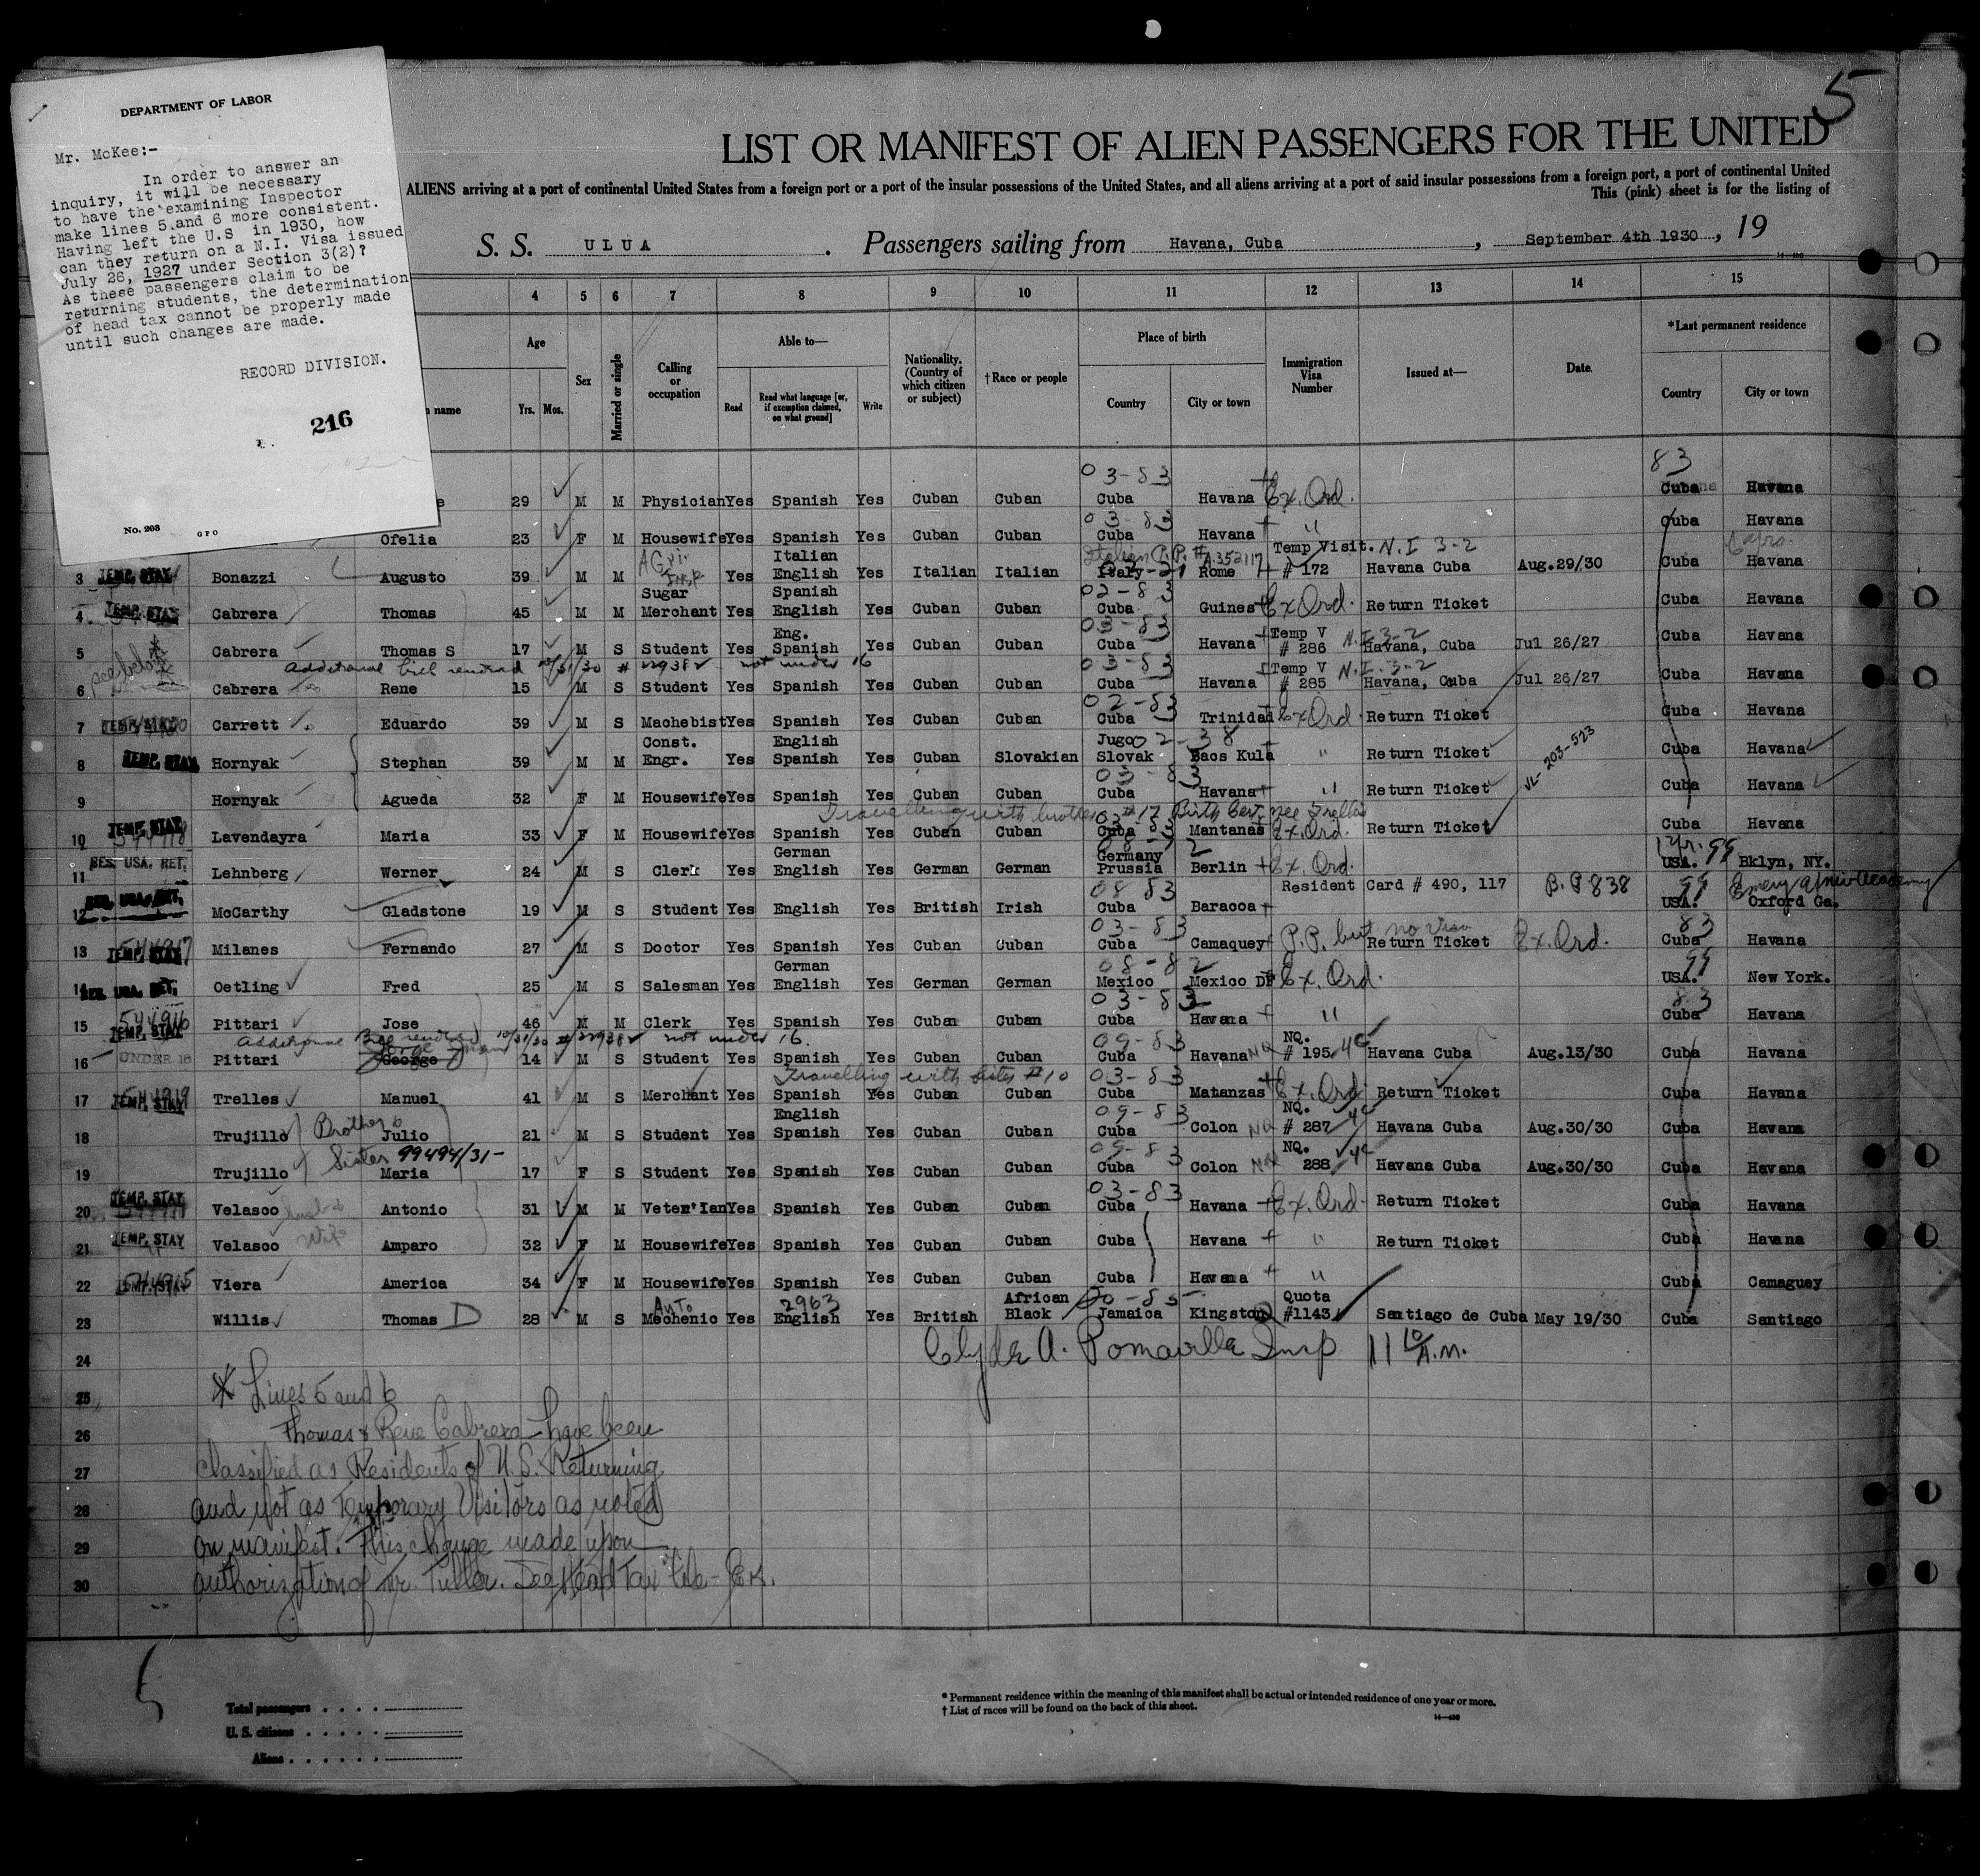 5
DEPARTMENT OF LABOR
Mr. McKee:-
In order to answer an
inquiry, it will be necessary
to have the examining Inspector
make lines 5 and 6 more consistent.
Having left the U.S in 1930, how
can they return on a N.I. Visa issued
July 26, 1927 under Section 3(2)?
As these passengers claim to be
returning students, the determination
of head tax cannot be properly made
until such changes are made.
RECORD DIVISION.
216
No. 203 GPO
LIST OR MANIFEST OF ALIEN PASSENGERS FOR THE UNITED
ALIENS arriving at a port of continental United States from a foreign port or a port of the insular possessions of the United States, and all aliens arriving at a port of said insular possessions from a foreign port, a port of continental United
This (pink) sheet is for the listing of
S. S. ULUA. Passengers sailing from Havana, Cuba, September 4th 1930, 19
4 5 6 7 8 9 10 11 12 13 14 15
Age Sex Married or single Calling or occupation Able to— Nationality. (Country of which citizen or subject) †Race or people Place of birth Immigration Visa Number Issued at— Date. *Last permanent residence
name Yrs. Mos. Read Read what language [or, if exemption claimed, on what ground] Write Country City or town Country City or town
03-83 83
e 29 M M Physician Yes Spanish Yes Cuban Cuban Cuba Havana Ex. Ord. Cuba Havana
03-83
Ofelia 23 F M Housewife Yes Spanish Yes Cuban Cuban Cuba Havana " Cuba Havana
3 TEMP. STAY Bonazzi Augusto 39 M M Yes Italian English Yes Italian Italian Italian P.P. # A.352117 Italy Rome Temp Visit. N.I 3-2 # 172 Havana Cuba Aug.29/30 Cuba Havana
4 TEMP. STAY Cabrera Thomas 45 M M Sugar Merchant Yes Spanish English Yes Cuban Cuban 02-83 Cuba Guines Ex Ord. Return Ticket Cuba Havana
5 Cabrera Thomas S 17 M S Student Yes Eng. Spanish Yes Cuban Cuban 03-83 Cuba Havana Temp V # 286 N.I. 3-2 Havana, Cuba Jul 26/27 Cuba Havana
see below Additional bill rendered 10/31/30 # 22938 not under 16
6 Cabrera Rene 15 M S Student Yes Spanish Yes Cuban Cuban 03-83 Cuba Havana Temp V # 285 N.I. 3-2 Havana, Cuba Jul 26/27 Cuba Havana
7 TEMP. STAY Carrett Eduardo 39 M S Machebist Yes Spanish Yes Cuban Cuban 02-83 Cuba Trinidad Ex Ord. Return Ticket Cuba Havana
8 TEMP. STAY Hornyak Stephan 39 M M Const. Engr. Yes English Spanish Yes Cuban Slovakian 02-38 Jugo Slovak Bacs Kula " Return Ticket Cuba Havana
9 Hornyak Agueda 32 F M Housewife Yes Spanish Yes Cuban Cuban 03-83 Cuba Havana " Return Ticket VL-203-523 Cuba Havana
Travelling with brother #17 Birth Cert. nee Trelles
10 TEMP. STAY Lavendayra Maria 33 F M Housewife Yes Spanish Yes Cuban Cuban 03-83 Cuba Mantanas Ex. Ord. Return Ticket Cuba Havana
11 RES. USA. RET. Lehnberg Werner 24 M S Clerk Yes German English Yes German German Germany Prussia Berlin Ex. Ord. 1 yr. 99 USA. Bklyn, NY.
12 RES. USA. RET. McCarthy Gladstone 19 M S Student Yes English Yes British Irish 08 83 Cuba Baracoa Resident Card # 490, 117 B.P 838 99 USA. Emery Academy Oxford Ga.
13 TEMP. STAY 544917 Milanes Fernando 27 M S Doctor Yes Spanish Yes Cuban Cuban 03-83 Cuba Camaquey P.P. but no visa Return Ticket Ex. Ord. 83 Cuba Havana
14 RES. USA. RET. Oetling Fred 25 M S Salesman Yes German English Yes German German 08-82 Mexico Mexico DF Ex. Ord. 99 USA. New York.
15 TEMP. STAY 544916 Pittari Jose 46 M M Clerk Yes Spanish Yes Cuban Cuban 03-83 Cuba Havana " 83 Cuba Havana
Additional Bill rendered 10/31/30 # 22938 not under 16.
16 UNDER 16 Pittari George 14 M S Student Yes Spanish Yes Cuban Cuban 09-83 Cuba Havana NQ NQ. # 195 4c Havana Cuba Aug.13/30 Cuba Havana
Travelling with sister #10
17 TEMP. STAY 544919 Trelles Manuel 41 M S Merchant Yes Spanish Yes Cuban Cuban 03-83 Cuba Matanzas Ex. Ord Return Ticket Cuba Havana
18 Trujillo Brother & Julio 21 M S Student Yes English Spanish Yes Cuban Cuban 09-83 Cuba Colon NQ NQ. # 287 4c Havana Cuba Aug.30/30 Cuba Havana
19 Trujillo Sister 99494/31- Maria 17 F S Student Yes Spanish Yes Cuban Cuban 09-83 Cuba Colon NQ NQ. 288 4c Havana Cuba Aug.30/30 Cuba Havana
20 TEMP. STAY Velasco husb & Antonio 31 M M Veter'Ian Yes Spanish Yes Cuban Cuban 03-83 Cuba Havana Ex. Ord. Return Ticket Cuba Havana
21 TEMP. STAY Velasco wife Amparo 32 F M Housewife Yes Spanish Yes Cuban Cuban Cuba Havana " Return Ticket Cuba Havana
22 TEMP. STAY 544915 Viera America 34 F M Housewife Yes Spanish Yes Cuban Cuban Cuba Havana " Cuba Camaguey
23 Willis Thomas D 28 M S Auto Mechenic Yes 2963 English Yes British African Black Jamaica Kingston Quota #1143 Santiago de Cuba May 19/30 Cuba Santiago
24 Clyde A. Pomaville Insp 11 10 A.M.
25 * Lines 5 and 6
26 Thomas & Rene Cabrera have been
27 classified as Residents of U.S. Returning
28 and not as Temporary Visitors as noted
29 on manifest. This change made upon
30 authorization of Mr. Tuller. See Head Tax file-
Total passengers
U. S. citizens
Aliens
* Permanent residence within the meaning of this manifest shall be actual or intended residence of one year or more.
† List of races will be found on the back of this sheet.